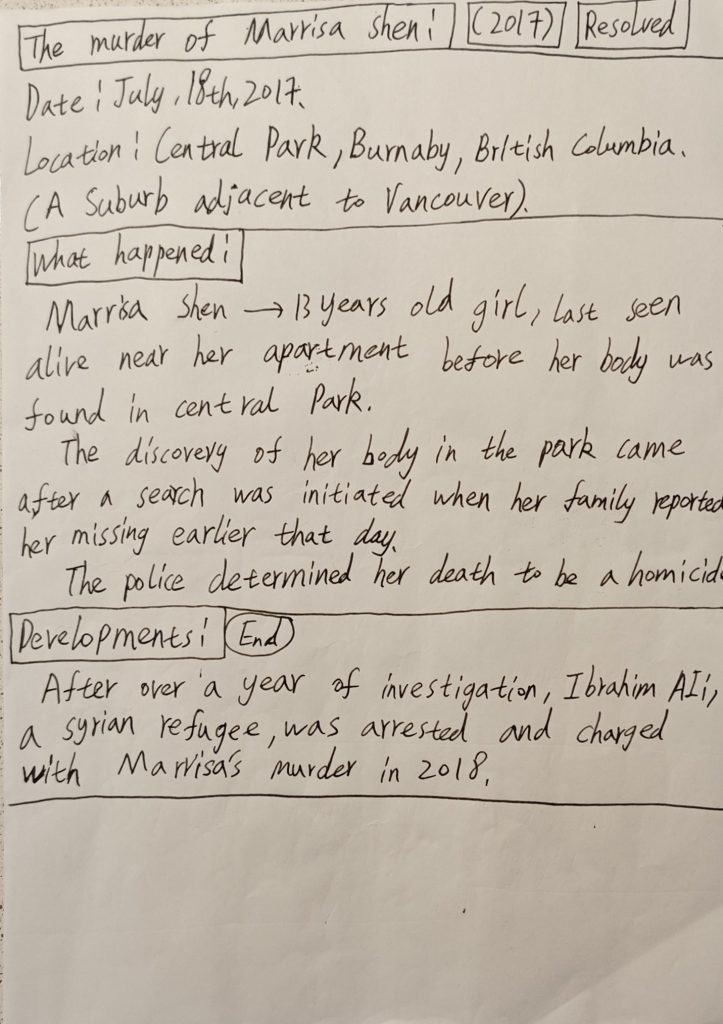 The murder of Marrisa shen: (2017) Resolved
Date: July, 18th, 2017.
Location: Central Park, Burnaby, British Columbia.
(A Suburb adjacent to Vancouver).
What happened:
Marrisa shen → 13 years old girl, last seen
alive near her apartment before her body was
found in central Park.
The discovery of her body in the park came
after a search was initiated when her family reported
her missing earlier that day.
The police determined her death to be a homicid
Developments: End
After over a year of investigation, Ibrahim Ali,
a syrian refugee, was arrested and charged
with Marrisa's murder in 2018.